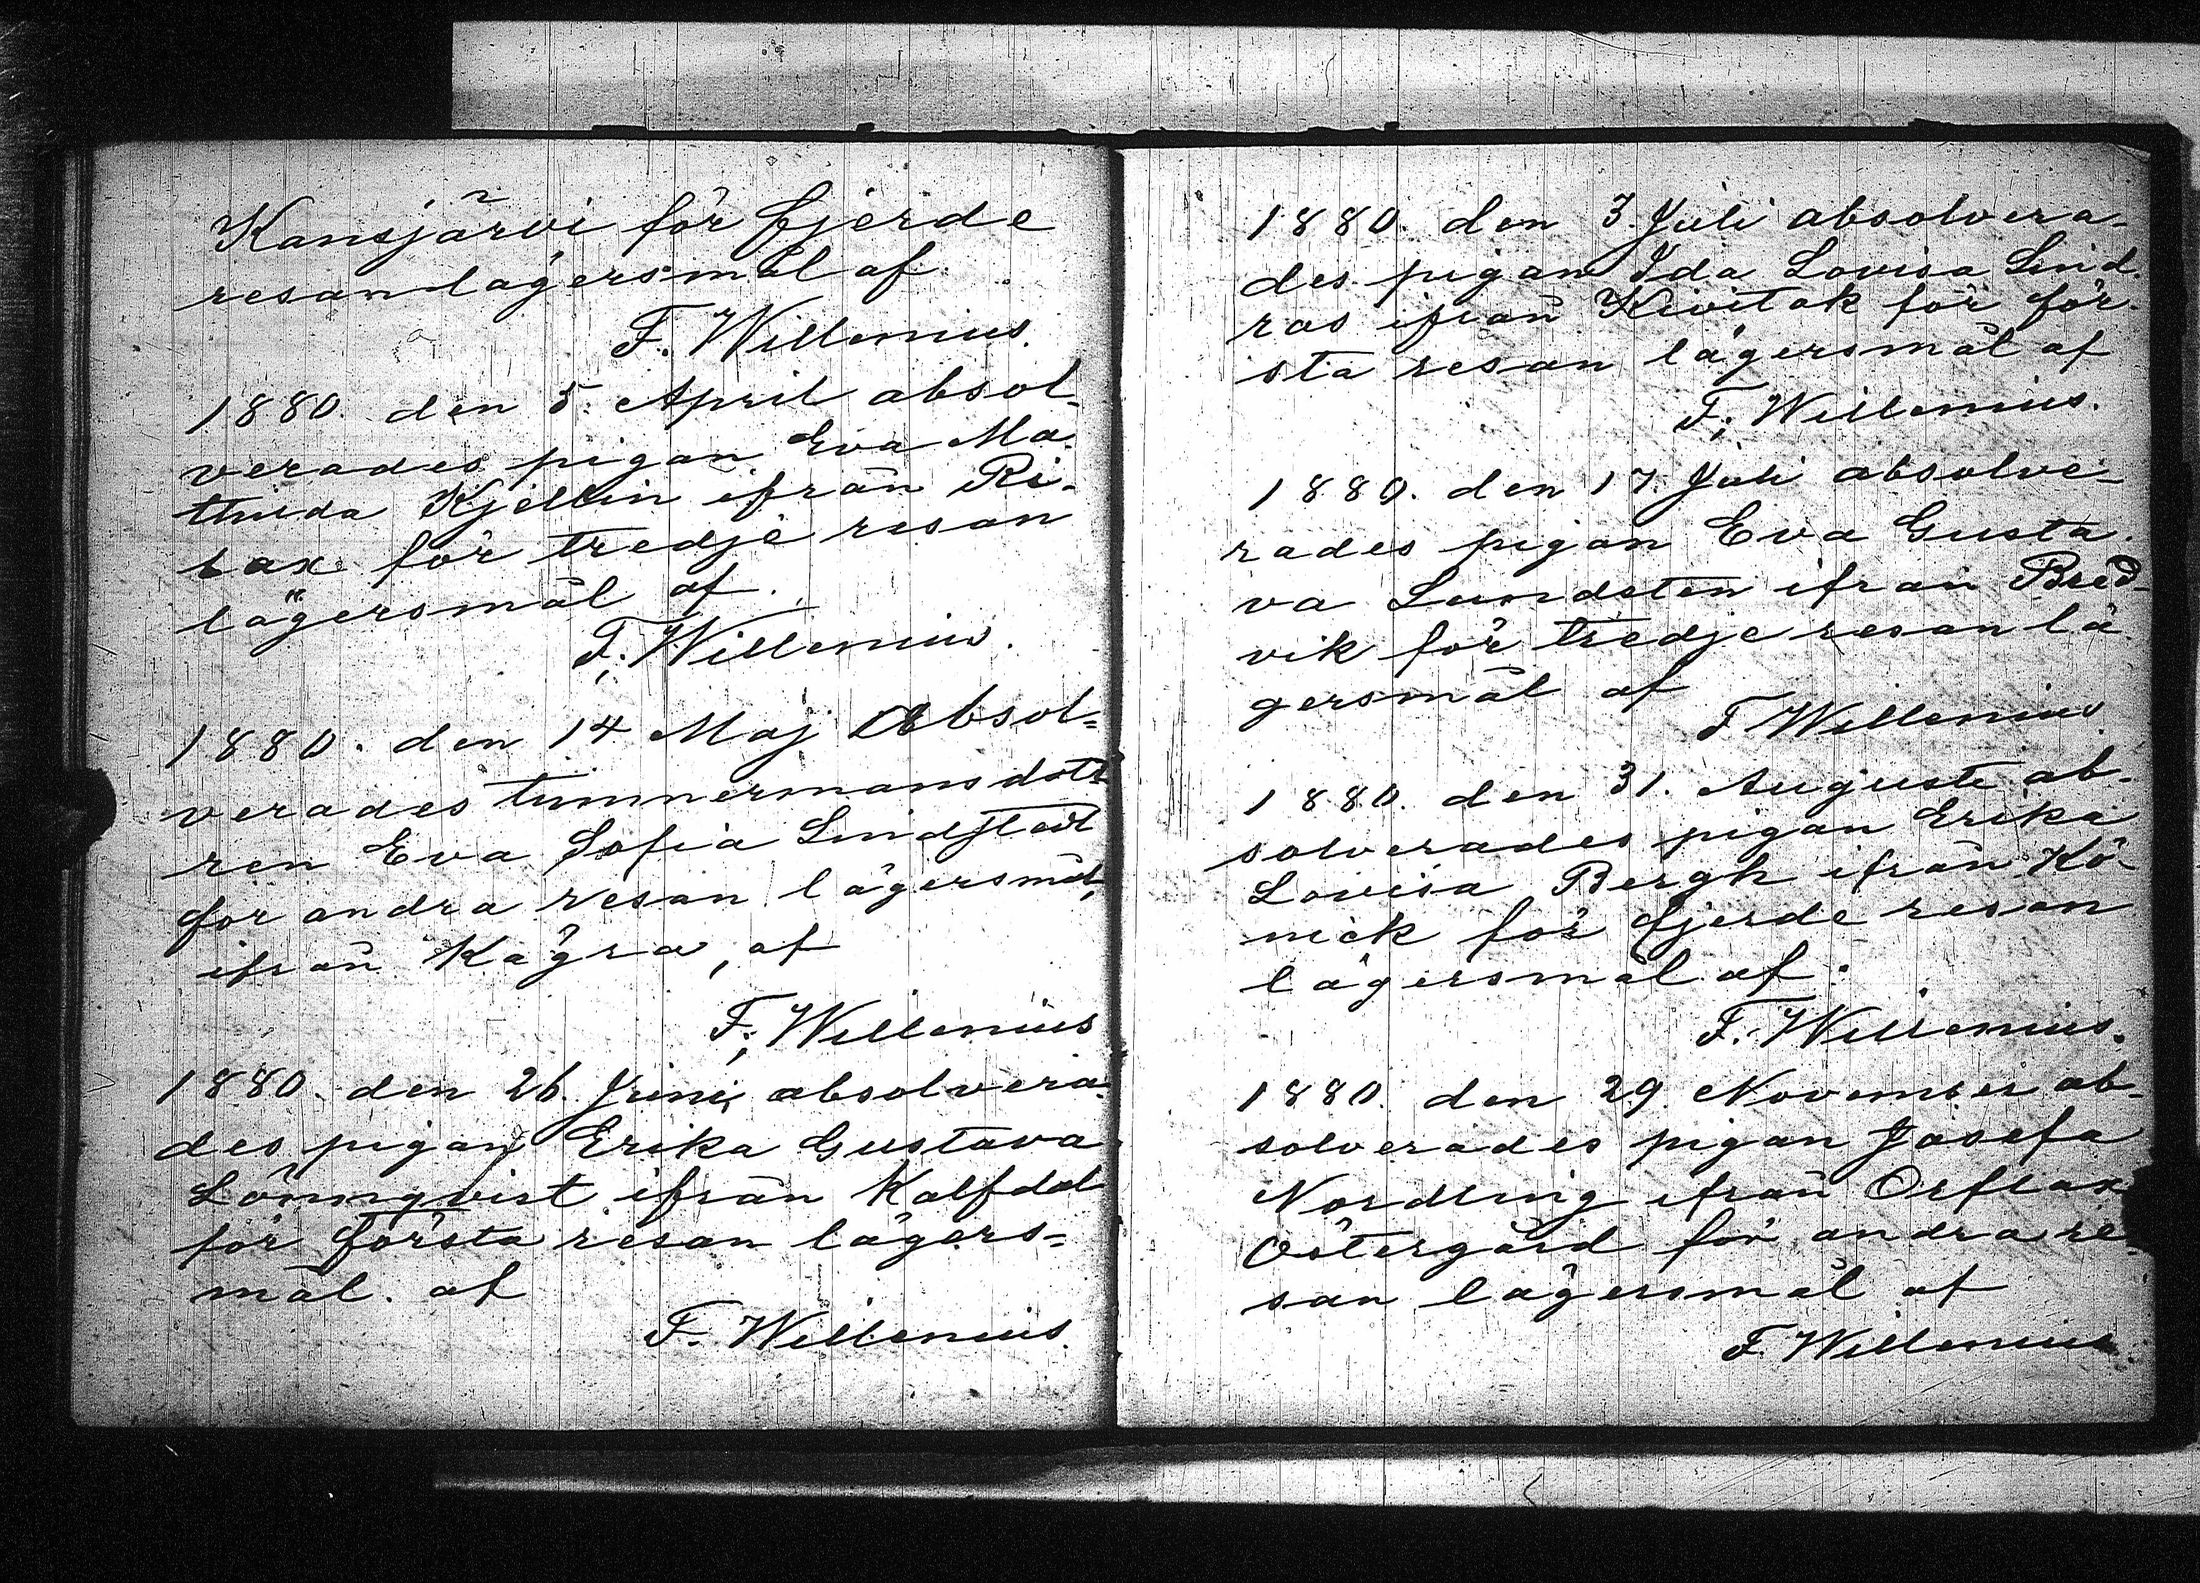 Kansjärvi för fjerde
resan lägersmål af
F. Willenius.
1880. den 5. April absol-
verades pigan Eva Ma-
thilda Kjellin ifrån Ri-
lax för tredje resan
lägersmål af.
F. Willenius.
1880. den 14 Maj Absol-
verades timmermansdott-
ren Eva Sofia Lindstedt
för andra resan lägersmål,
ifrån Kågra, af
F. Willenius
1880. den 26. Juni absolvera-
des pigan Erika Gustava
Lönnqvist ifrån Kalfdal
för första resan lägers-
mål. af
F. Willenius.
1880. den 3. Juli absolvera-
des pigan Ida Lovisa Lind-
ros ifrån Kivitok för för-
sta resan lägersmål af
F. Willenius.
1880. den 17. Juli absolve-
rades pigan Eva Gusta-
va Lundsten ifrån Bred-
vik för tredje resan lä-
gersmål af
F Willenius
1880. den 31. Augusti ab-
solverades pigan Erika
Lovisa Bergh ifrån Kö-
nick för fjerde resan
lägersmål af.
F. Willenius.
1880. den 29. November ab-
solverades pigan Josefa
Nordling ifrån Orflax
Östergård för andra re-
san lägersmål af
F. Willenius